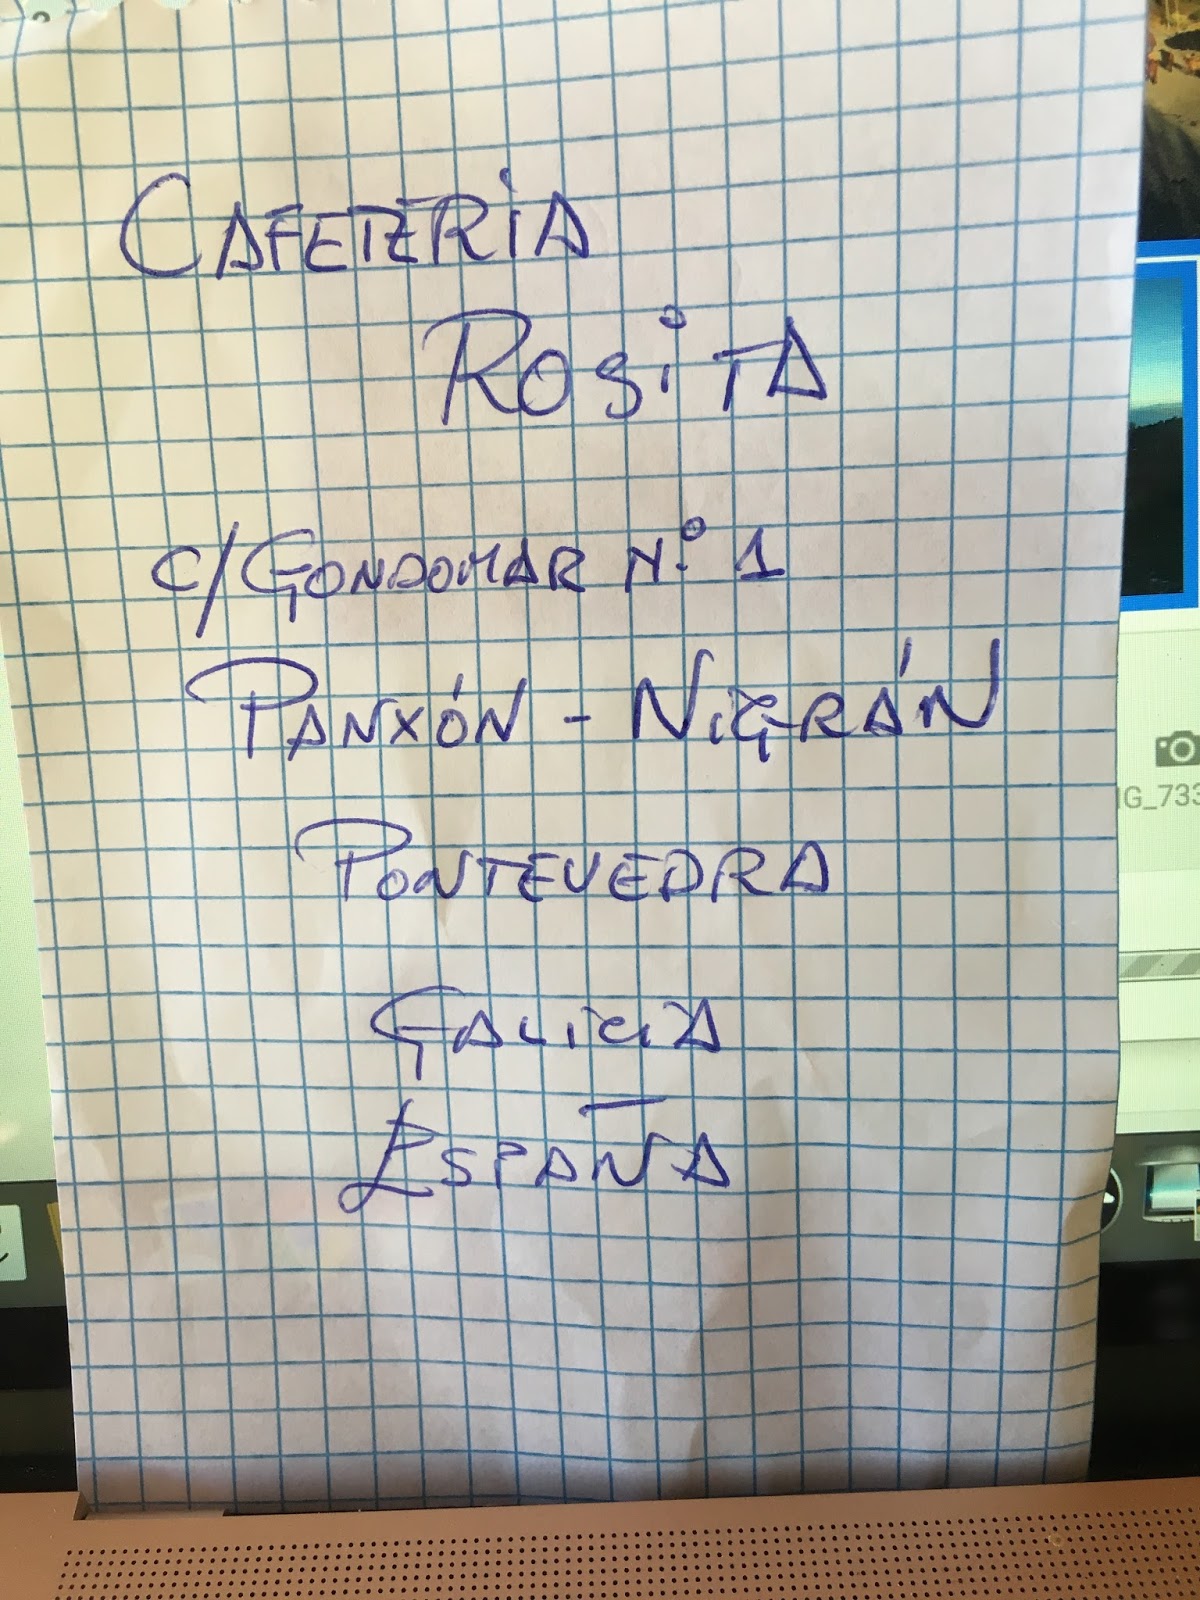 CAFETERiA
ROSiTA
c/GONDOMAR N.º 1
PANXÓN - NIGRÁN
PONTEVEDRA
GALICIA
ESPAÑA
IG_733